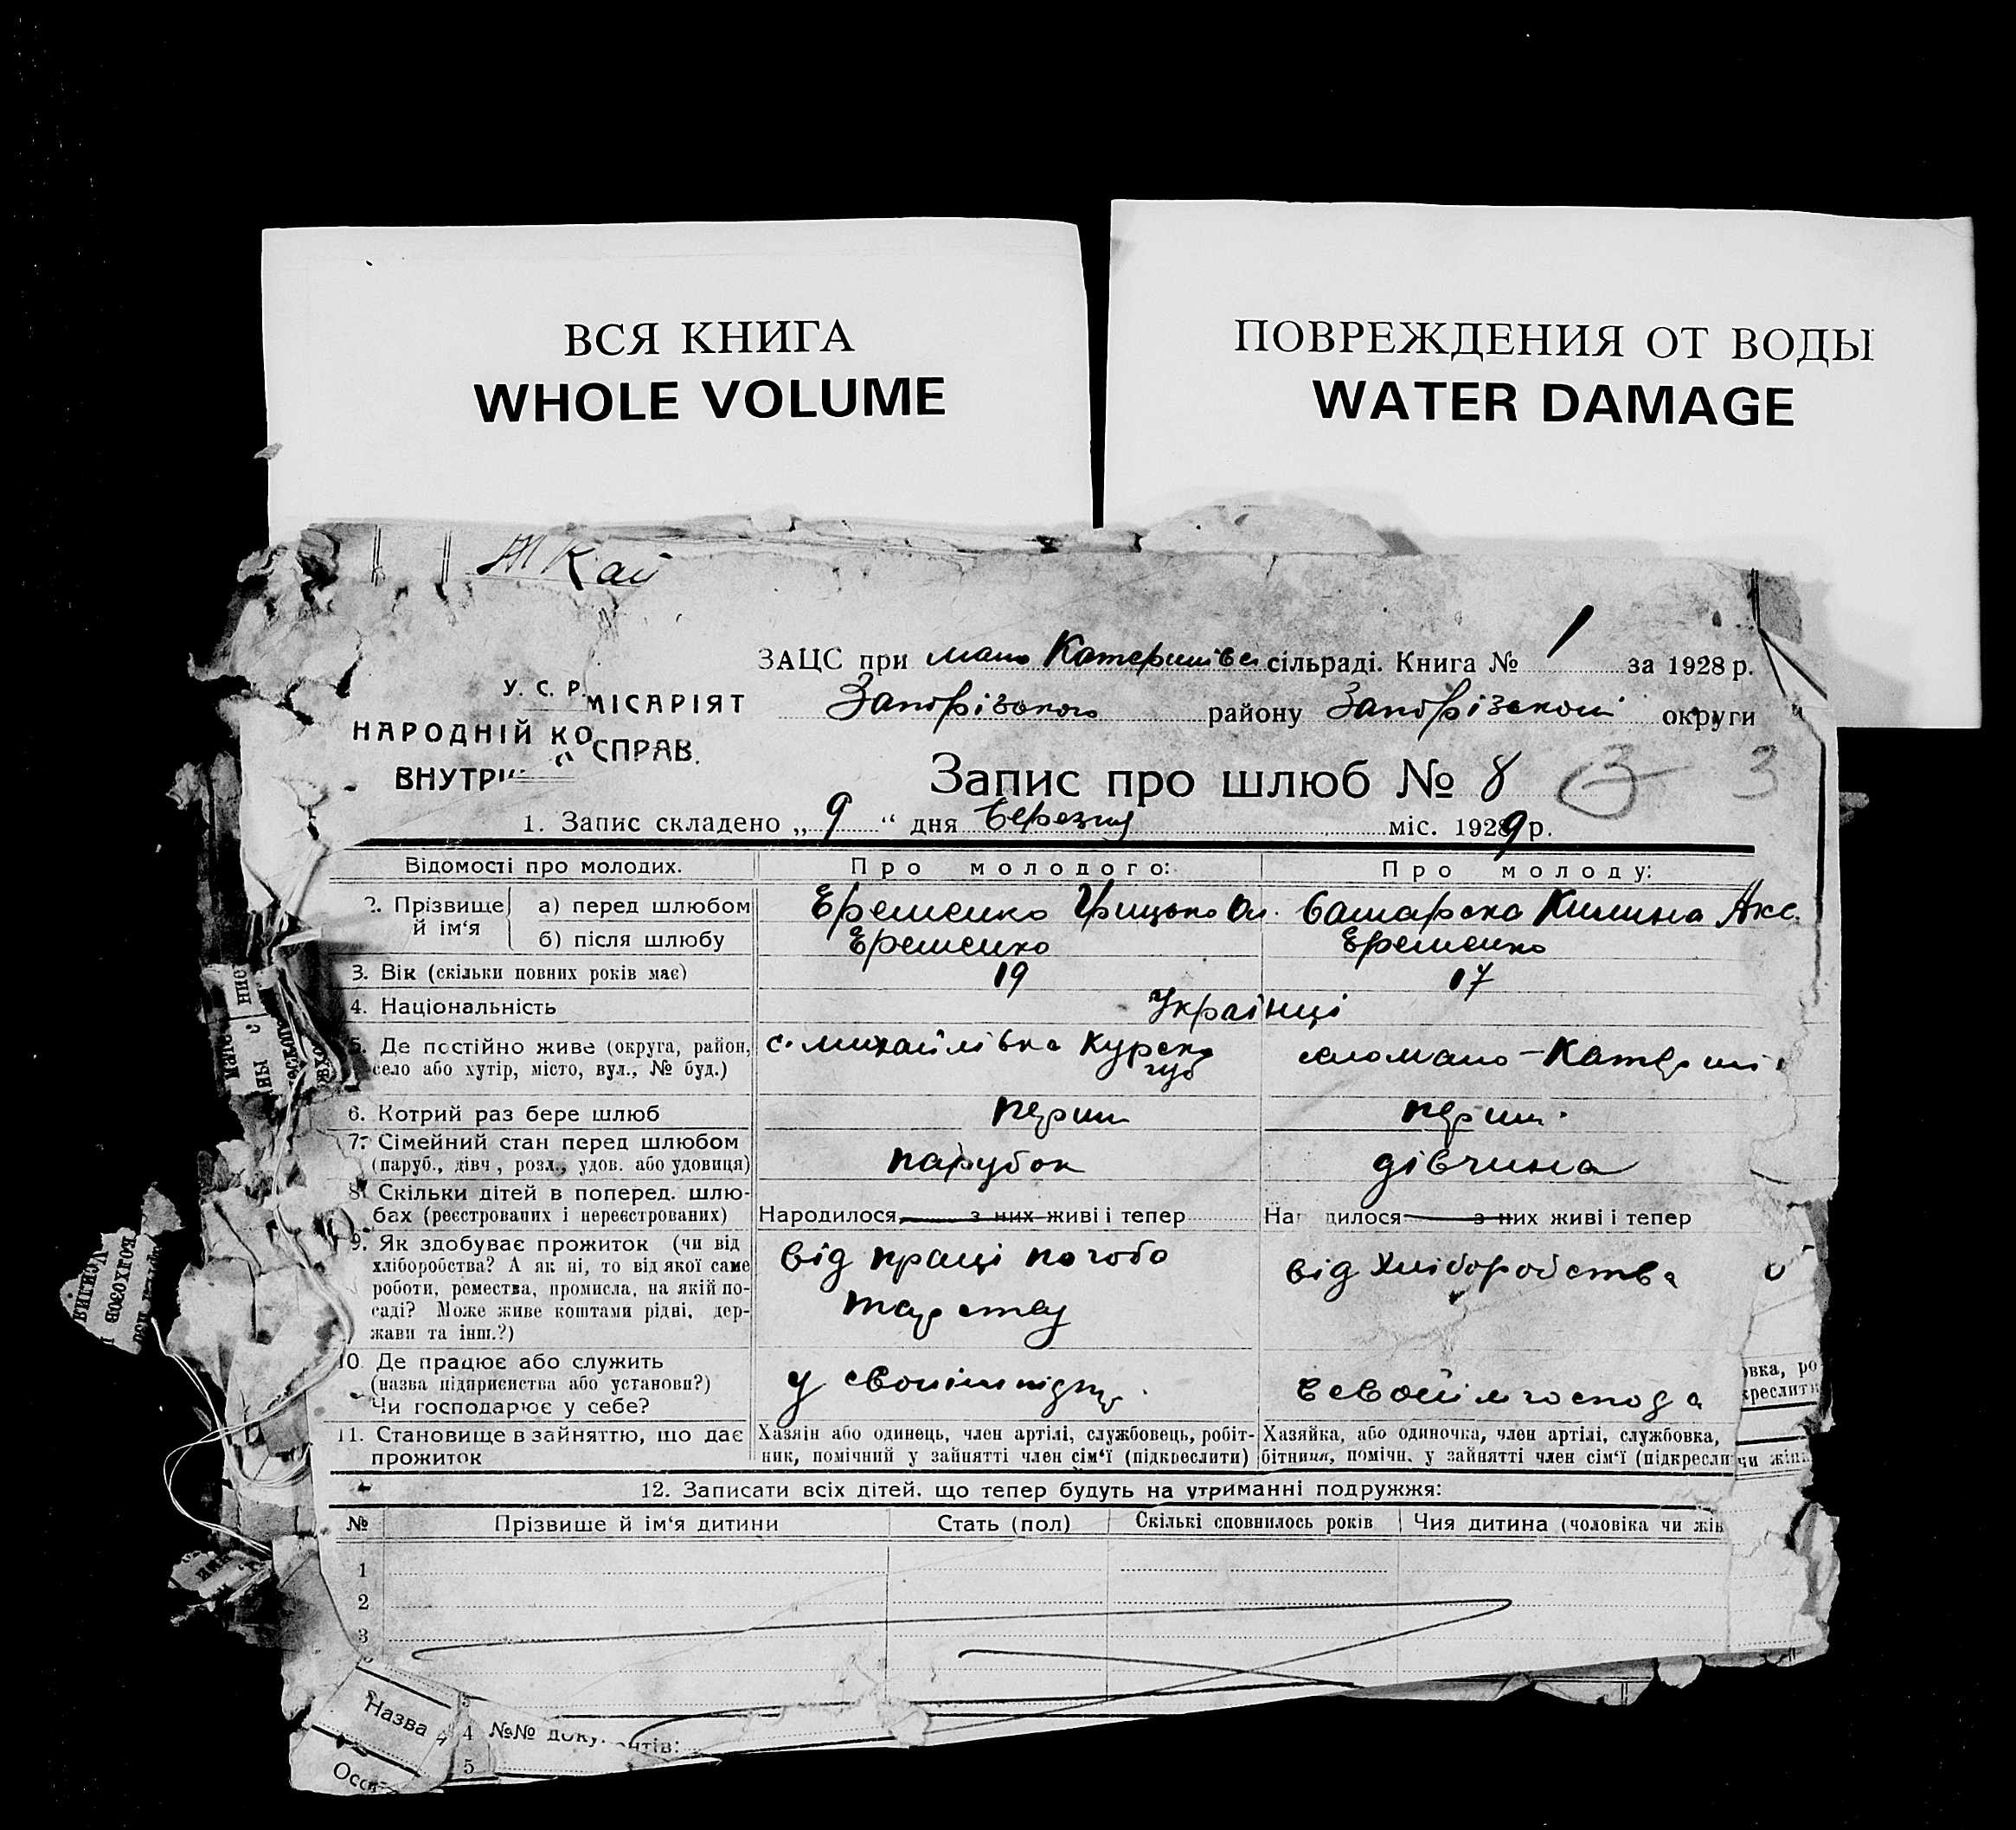 ВСЯ КНИГА
WHOLE VOLUME
ПОВРЕЖДЕНИЯ ОТ ВОДЫ
WATER DAMAGE
ЗАЦС при мало Катеринівсі сільраді. Книга № 1 за 1928 р.
У. С. Р.
НАРОДНІЙ КО МІСАРІЯТ
ВНУТРІ СПРАВ.
Запорізького району Запорізської округи
Запис про шлюб № 8 3 3
1. Запис складено „9“ дня березня міс. 1929 р.
Відомості про молодих. Про молодого: Про молоду:
2. Прізвище й ім‘я
а) перед шлюбом Еременко Грицько Ол. Самарска Килина Акс.
б) після шлюбу Еременко Еременко
3. Вік (скільки повних років має) 19 17
4. Національність Українці
5. Де постійно живе (округа, район, с. михайлівка Курска губ село мало-Катери
село або хутір, місто, вул., № буд.)
6. Котрий раз бере шлюб перш перш.
7. Сімейний стан перед шлюбом парубок дівчина
(паруб., дівч, розл., удов. або удовиця)
8. Скільки дітей в поперед. шлю-
бах (реєстрованих і нереєстрованих) Народилося з них живі і тепер На дилося з них живі і тепер
9. Як здобуває прожиток (чи від від праці по чобо
хліборобства? А як ні, то від якої саме від хліборобства
роботи, ремества, промисла, на якій по-
саді? Може живе коштами рідні, дер-
жави та інш.?)
10. Де працює або служить
(назва підприємства або установи?) у своїм в своїм господа
Чи господарює у себе?
11. Становище в зайняттю, що дає Хазяїн або одинець, член артілі, службовець, робіт- Хазяйка, або одиночка, член артілі, службовка,
прожиток ник, помічний у зайнятті член сім‘ї (підкреслити) бітниця, помічн. у зайнятті член сім‘ї (підкресли
12. Записати всіх дітей, що тепер будуть на утриманні подружжя:
№ Прізвище й ім‘я дитини Стать (пол) Скількі сповнилось років Чия дитина (чоловіка чи жін
1
2
3
Назва
3
4 №№ доку нтів:
5